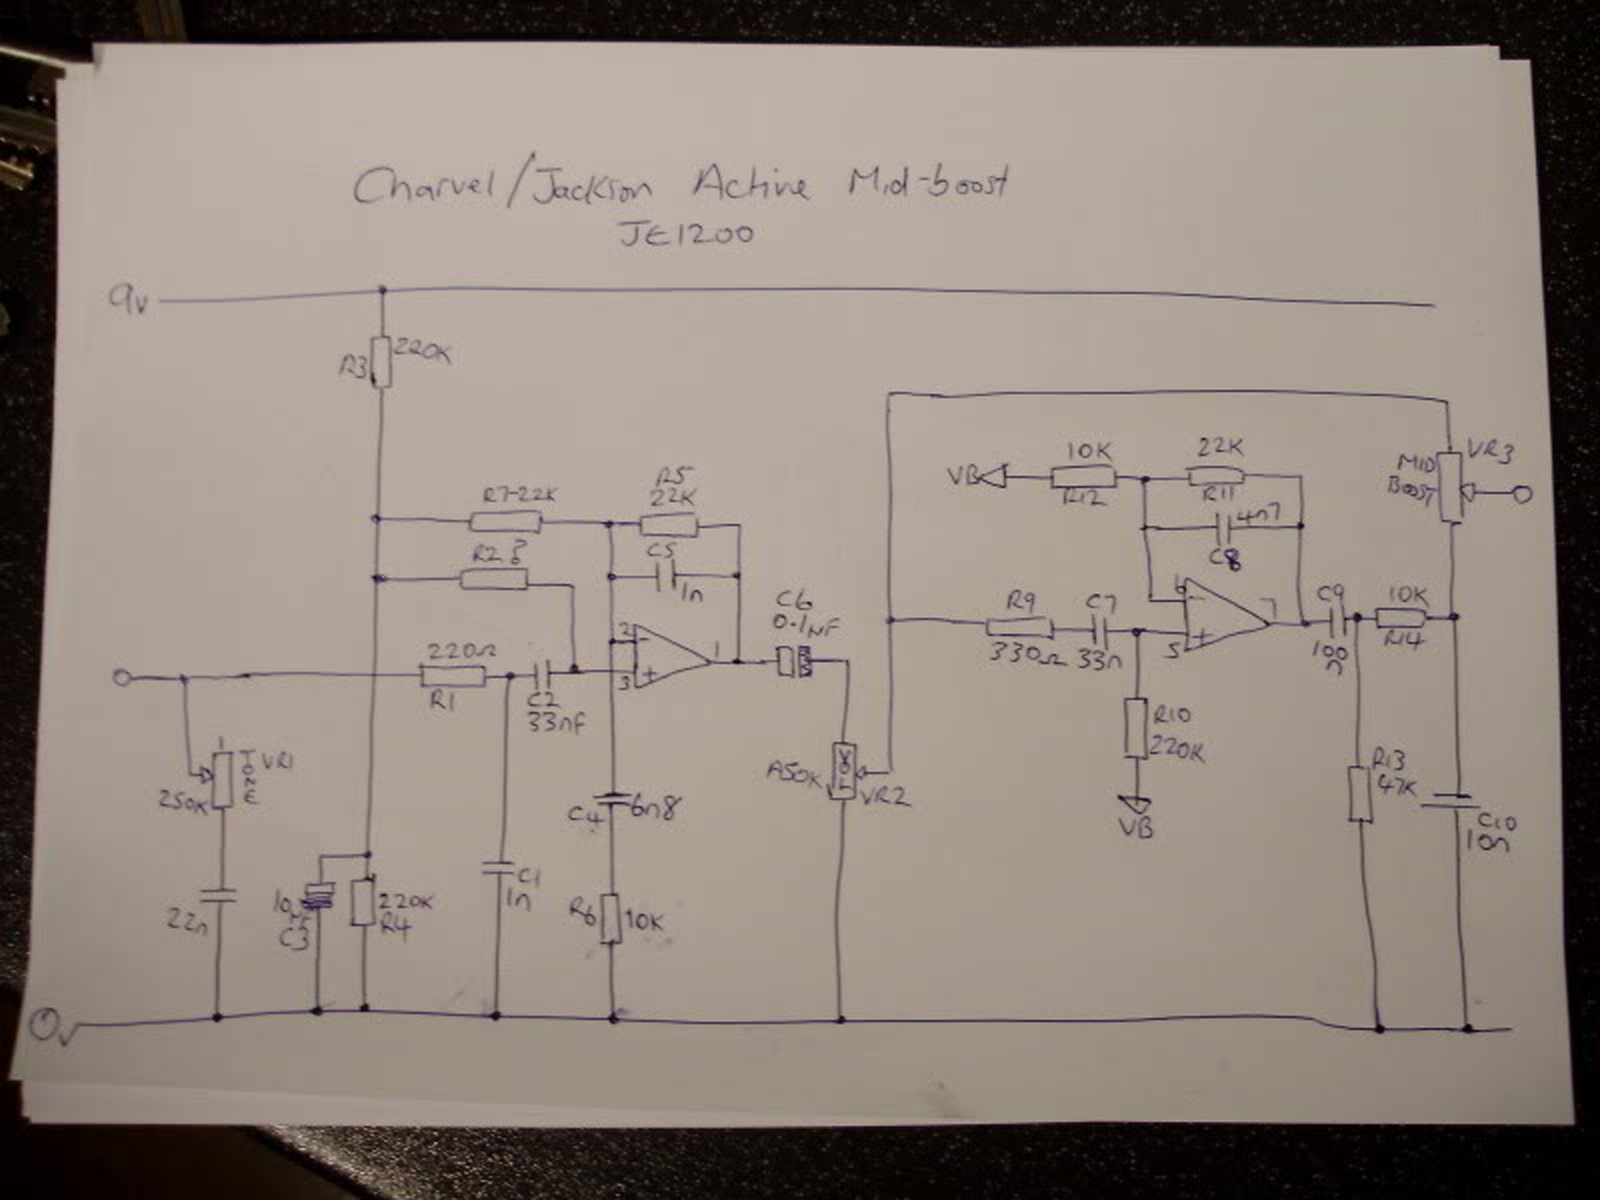 Charvel/Jackson Active Mid-boost
JE1200
9v
R3
220K
R7-22K
R5
22K
R2 ?
C5
1n
220Ω
R1
C2
33nF
2
-
+
3
1
C6
0.1µF
TONE
VR1
250K
22n
10µF
C3
220K
R4
C1
1n
C4
6n8
R6
10K
A50K
VOL
VR2
VB
10K
R12
22K
R11
4n7
C8
R9
330Ω
C7
33n
6
-
+
5
7
R10
220K
VB
C9
100n
10K
R14
R13
47K
C10
10n
MID
BOOST
VR3
0v